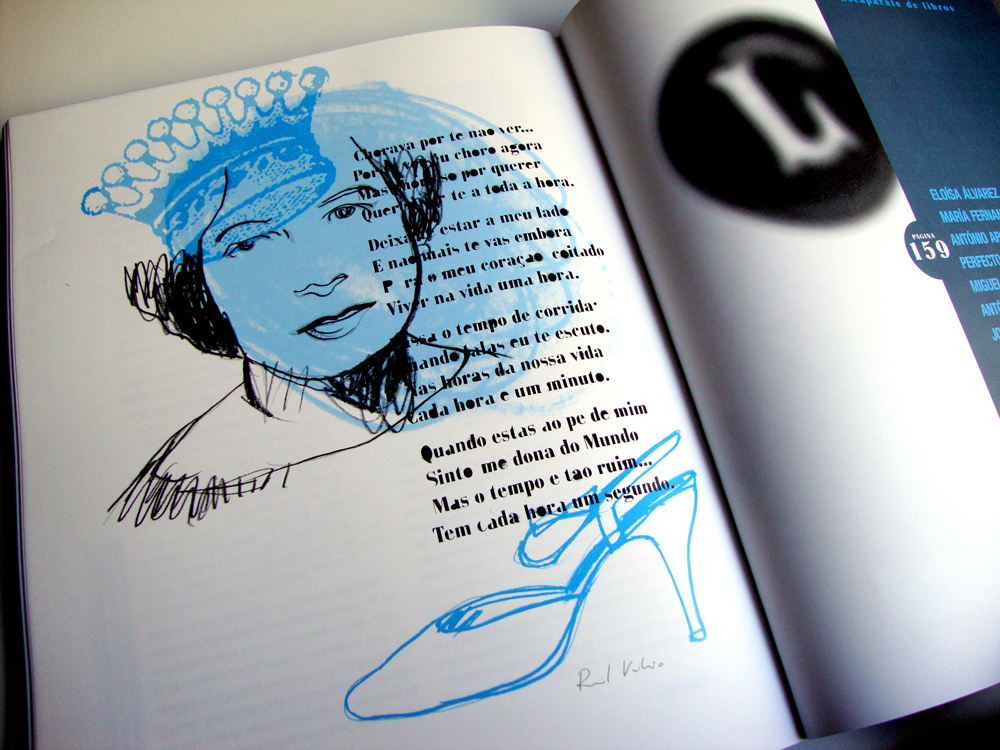 Chorava por te nao ver...
choro agora
so por querer
te a toda a hora.
Deixa estar a meu lado
E nao mais te vas embora
meu coração coitado
Viver na vida uma hora.
o tempo de corrida
falas eu te escuto.
horas da nossa vida
Cada hora e um minuto.
Quando estas ao pe de mim
Sinto me dona do Mundo
Mas o tempo e tao ruim...
Tem cada hora um segundo.
L
escaparate de libros
ELOÍSA ÁLVAREZ
MARÍA
ANTÓNIO
PERFECTO
PÁGINA
159